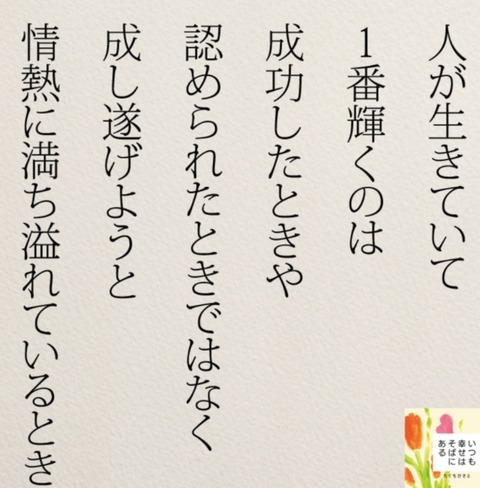 人が生きていて
1番輝くのは
成功したときや
認められたときではなく
成し遂げようと
情熱に満ち溢れているとき
いつも
幸せは
そばに
ある
たぐちひさと